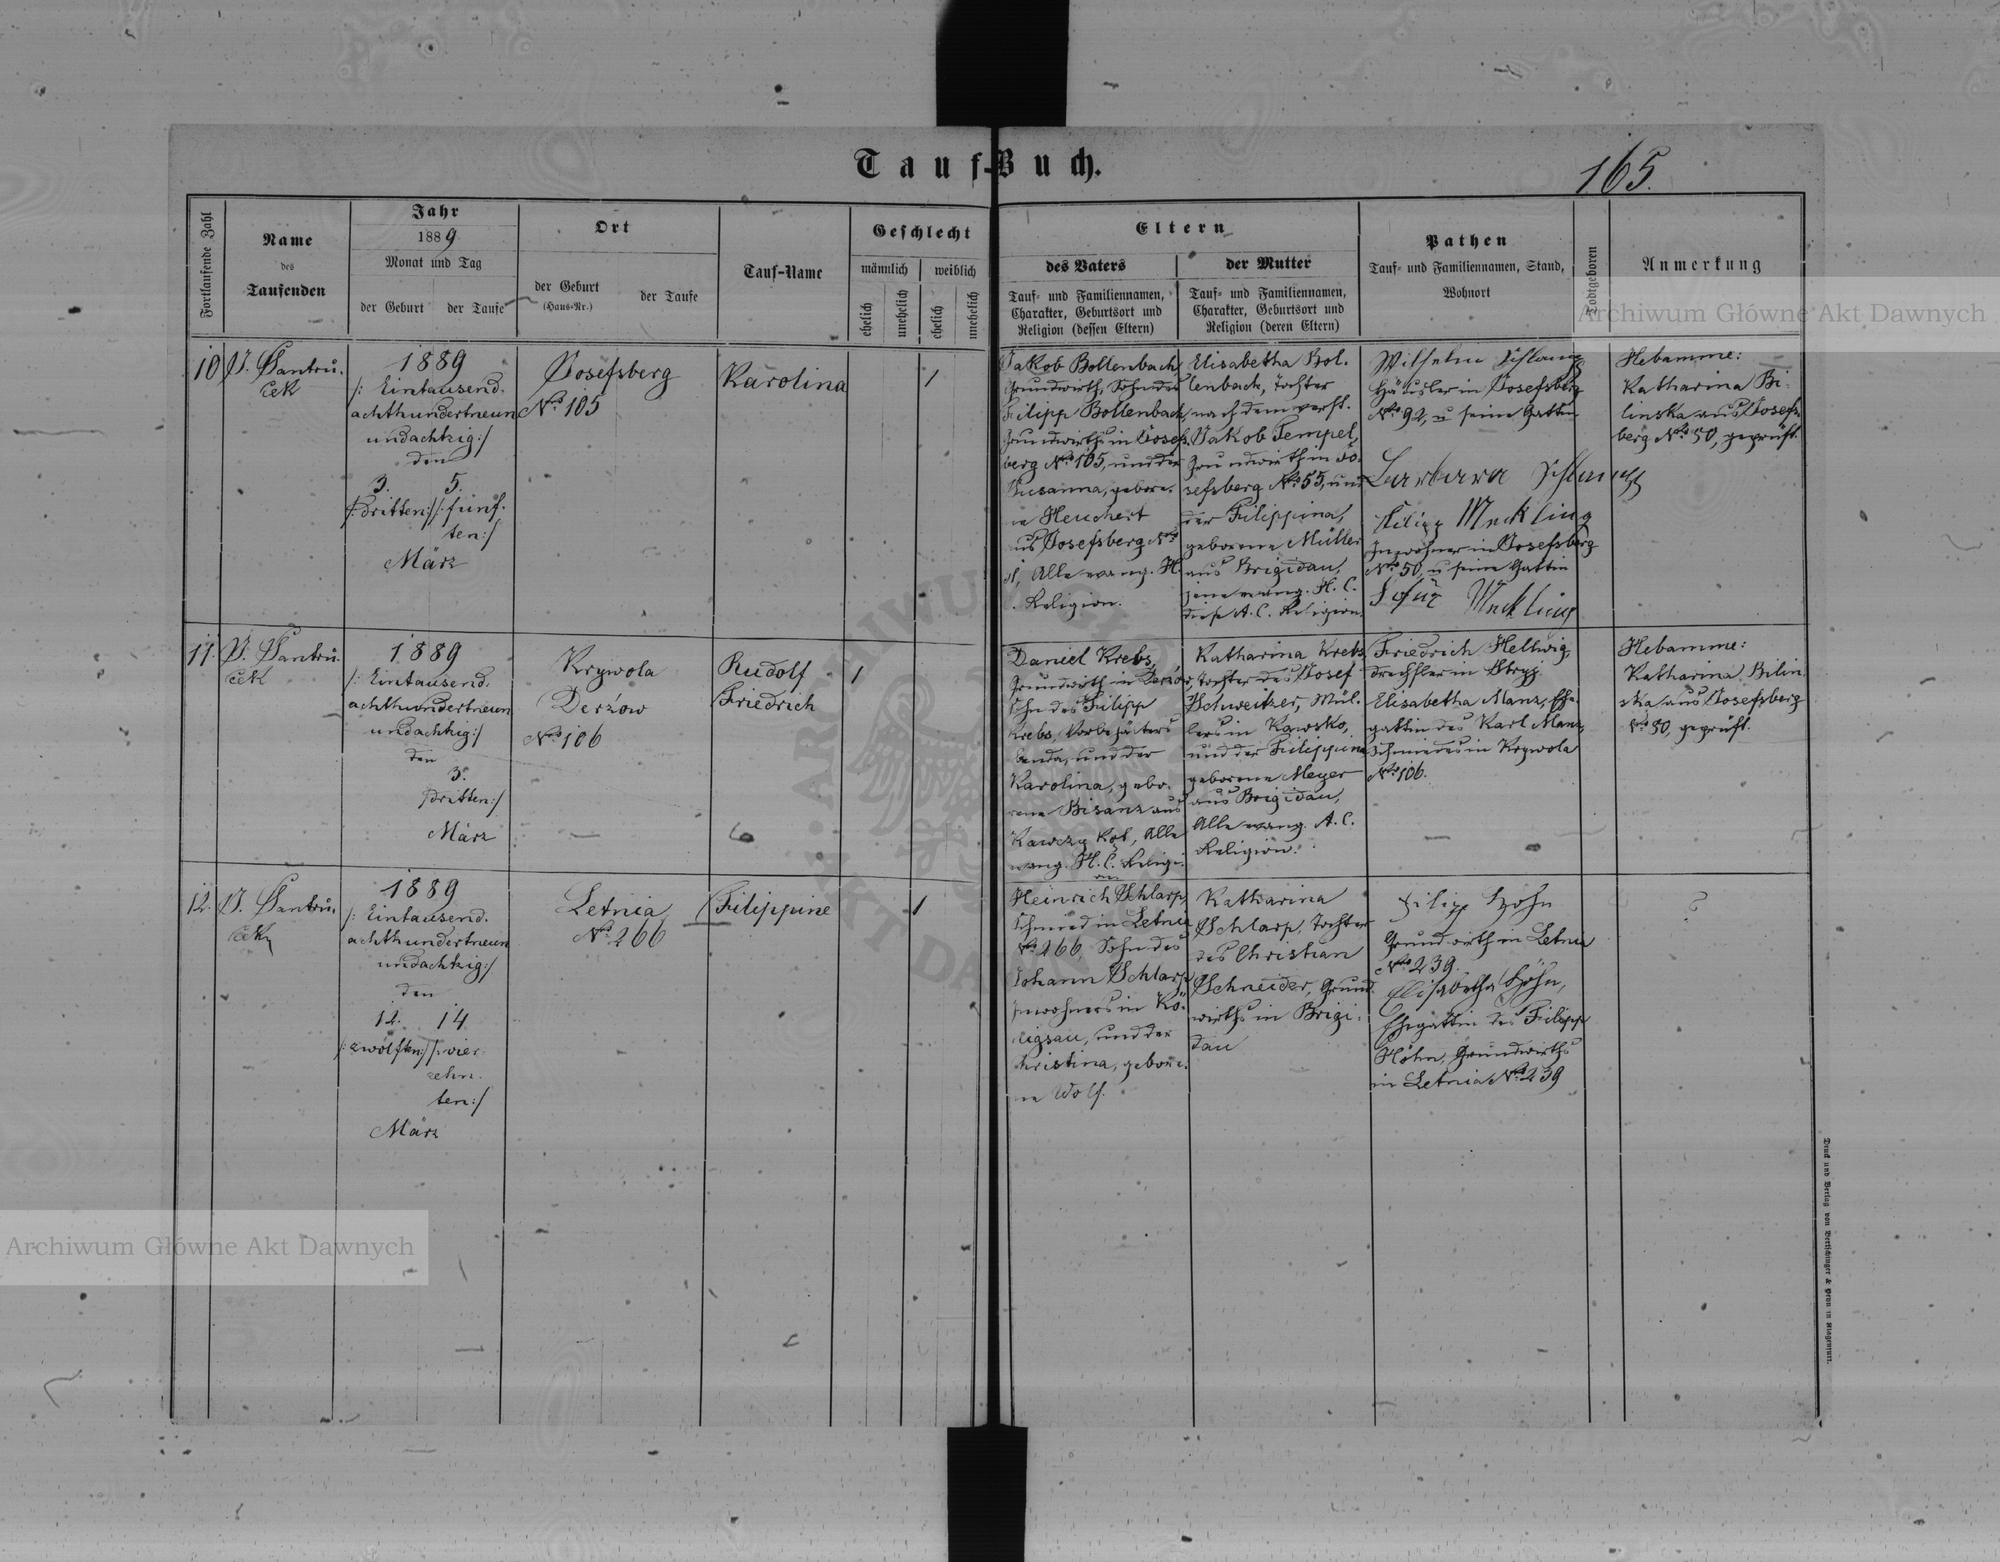 Tauf-Buch.
165.
Fortlaufende Zahl
Name
des
Taufenden
Jahr
1889
Monat und Tag
der Geburt
der Taufe
Ort
der Geburt
(Haus-Nr.)
der Taufe
Tauf-Name
Geschlecht
männlich
weiblich
ehelich
unehelich
ehelich
unehelich
Eltern
des Vaters
Tauf- und Familiennamen,
Charakter, Geburtsort und
Religion (dessen Eltern)
der Mutter
Tauf- und Familiennamen,
Charakter, Geburtsort und
Religion (deren Eltern)
Pathen
Tauf- und Familiennamen, Stand,
Wohnort
Todtgeboren
Anmerkung
10
J. Jantru-
ček
1889
/: Eintausend-
achthundertneun
undachtzig :/
den
3. 5.
/: dritten :/ /: fünf-
ten :/
März
Josefsberg
No 105
Karolina
1
Jakob Bollenbach
Grundwirth, Sohn des
Filipp Bollenbach,
Grundwirths in Josefs-
berg No 105, und der
Susanna, gebore-
ne Heuchert
aus Josefsberg No
Alle evang. H.
Religion.
Elisabetha Bol-
lenbach, Tochter
nach dem verst.
Jakob Tempel,
Grundwirth in Jo-
sefsberg No 55, und
der Filippina,
geborene Müller
aus Brigidau,
jene evang. H. C.
diese A. C. Religion.
Wilhelm Schlaug
Häusler in Josefsberg
No 92, u seine Gattin
Barbara Schlaug
Filipp Meckling
Inwohner in Josefsberg
No 50, u seine Gattin
Meckling
Hebamme:
Katharina Bi-
linska aus Josefs-
berg No 50, geprüft.
11.
J. Jantru-
ček
1889
/: Eintausend-
achthundertneun
undachtzig :/
den
3.
dritten :/
März
Krywola
Derżow
No 106
Rudolf
Friedrich
1
Daniel Krebs,
Grundwirth in Derżow,
Sohn des Filipp
Krebs, Vorbehälters
benda, und der
Karolina, gebo-
rene Bisanz aus
Kawczy Kąt, Alle
evang. H. C. Religi-
on
Katharina Krebs
Tochter des Josef
Schweitzer, Mül-
lers in Kawsko,
und der Filippina
geborene Meyer
aus Brigidau,
Alle evang. A. C.
Religion.
Friedrich Hellwig,
Drechsler in Stryj.
Elisabetha Manz, Ehe-
gattin des Karl Manz,
Schmiedes in Krywola
No 106.
Hebamme:
Katharina Bilin-
ska aus Josefsberg
No 50, geprüft.
12.
J. Jantru-
ček
1889
/: Eintausend-
achthundertneun
undachtzig :/
den
12. 14
/: zwölften :/ /: vier-
zehn-
ten :/
März
Letnia
No 266
Filippine
1
Heinrich Schlarp,
Schmied in Letnia
No 266, Sohn des
Johann Schlarp
Inwohners in Kö-
nigsau, und der
Christina, gebore-
ne Wolf.
Katharina
Schlarp, Tochter
des Christian
Schneider, Grund-
wirths in Brigi-
dau
Filipp Höhn
Grundwirth in Letnia
No 239.
Elisabetha Höhn,
Ehegattin des Filipp
Höhn, Grundwirths
in Letnia No 239
?
Archiwum Główne Akt Dawnych
Archiwum Główne Akt Dawnych